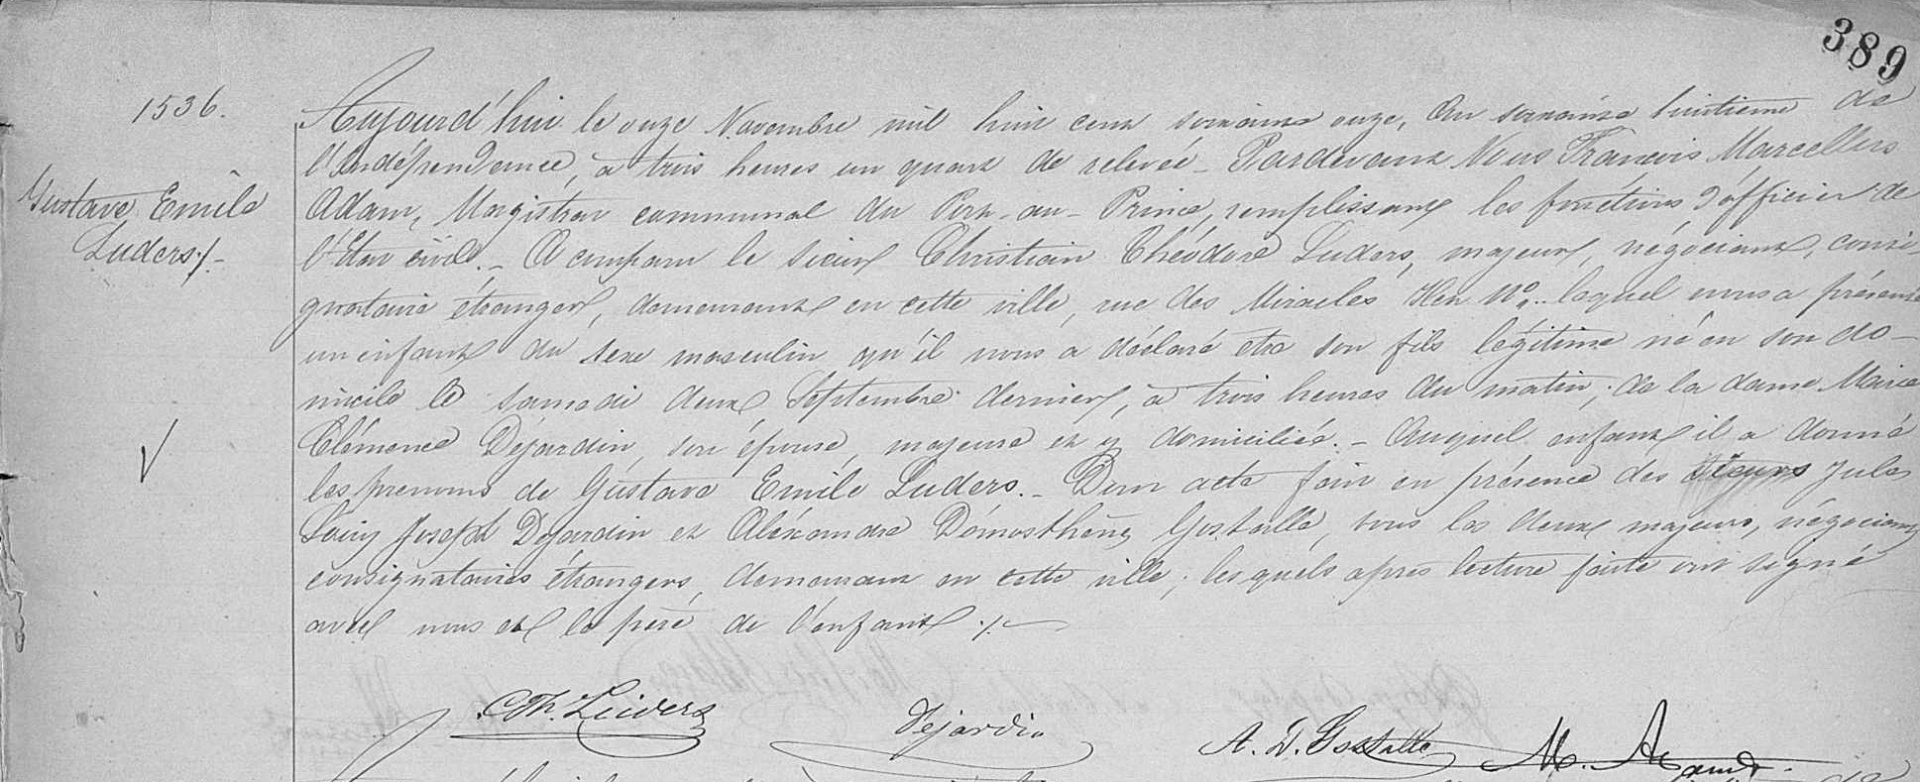 389
1536.
Gustave Emile
Luders ./.
Aujourd'hui le onze Novembre mil huit cent soixante onze, An soixante huitieme de
l'Indépendance, à trois heures un quart de relevée _ Pardevant Nous Francois Marcellus
Adam, Magistrat communal du Port-au-Prince, remplissant les fonctions d'officier de
l'Etat civil. _ A comparu le sieur Christian Théodore Luders, majeur, négociant, consi-
gnataire étranger, demeurant en cette ville, rue des Miracles Ilet No. lequel nous a présenté
un enfant du sexe masculin qu'il nous a déclaré etre son fils légitime né en son do-
micile le samedi deux Septembre dernier, à trois heures du matin, de la dame Marie
Clémence Déjardin, son épouse, majeure et y domiciliée. _ Auquel enfant il a donné
les prenoms de Gustave Emile Luders. _ Dont acte fait en présence des sieurs Jules
Joseph Dejardin et Aléxandre Démosthène Gostalle, tous les deux majeurs, négociants
consignataires étrangers, demeurant en cette ville, lesquels apres lecture faite ont signé
avec nous et le père de l'enfant ./.
C Th. Lüders
Dejardin
A. D. Gostalle
M. Adam